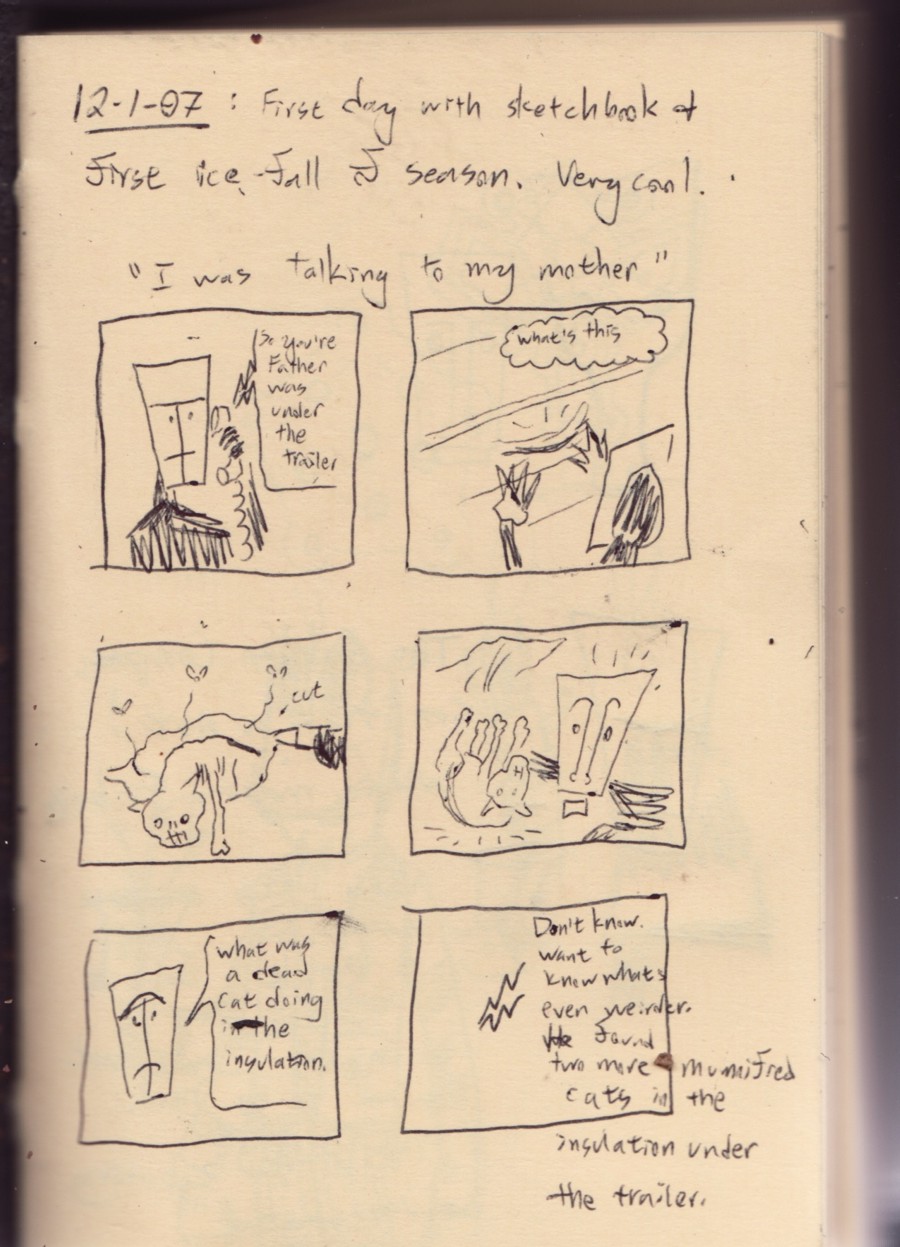 12-1-07 : First day with sketchbook &
First ice-fall of season. Very cool.
"I was talking to my mother"
So you're
Father
was
under
the
trailer
what's this
cut
what was
a dead
cat doing
in the
insulation.
Don't know.
want to
know what's
even weirder.
We found
two more mummifred
cats in the
insulation under
the trailer.